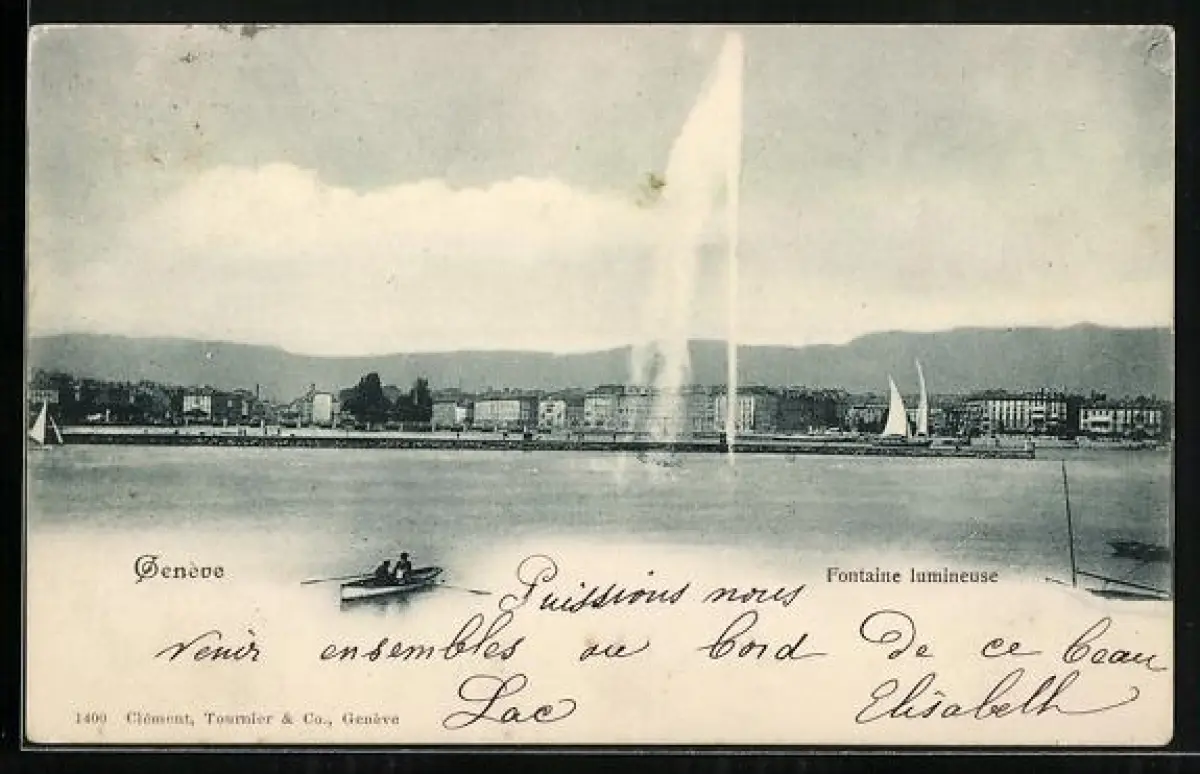 Genève
Fontaine lumineuse
Puissions nous
venir ensembles au Bord De ce beau
Lac
Elisabelh
1400 Clément, Tournier & Co., Genève